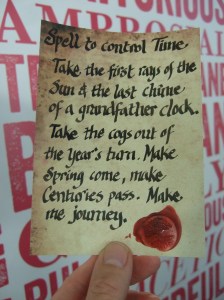 TORIOUS
AMBROSIA
Spell to control Time
Take the first rays of the
Sun & the last chime
of a grandfather clock.
Take the cogs out of
the year's turn. Make
Spring come, make
Centuries pass. Make
me journey.